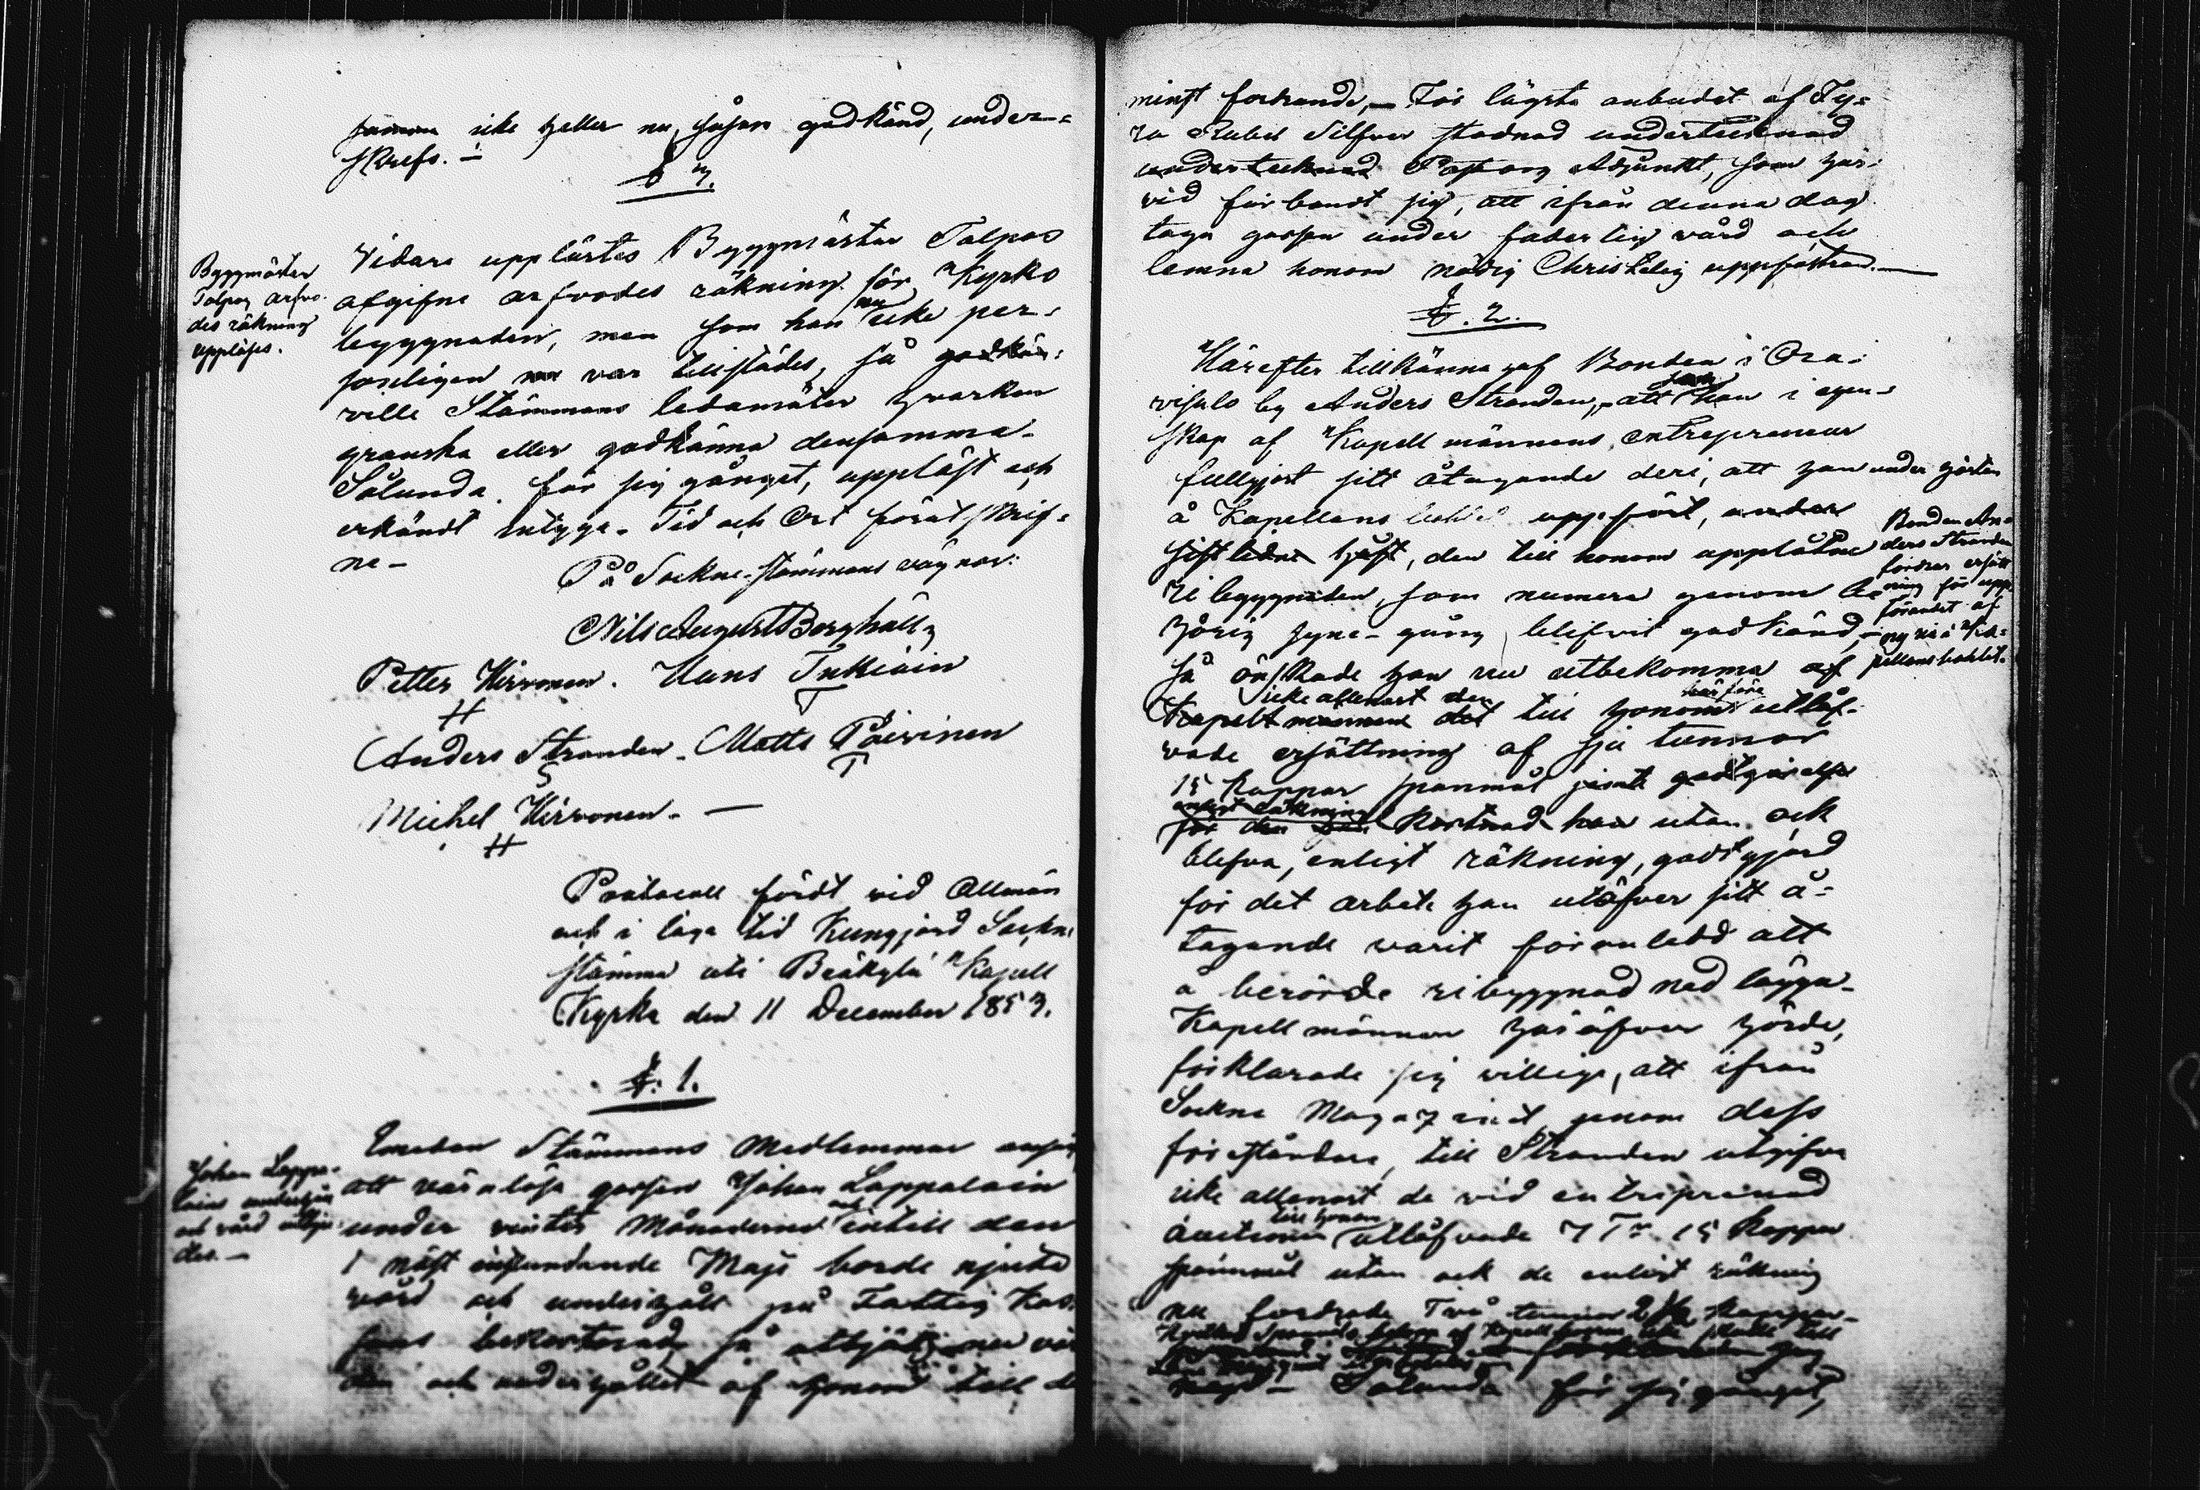 icke heller nu, såsom godkänd, under-
skrefs. —
§ 3.
Byggmäster
Tolpos arfvo-
des räkning
upplöses.
Vidare upplästes Byggmästar Tolpos
afgifne arfvodes räkning för Kyrko
byggnaden, men som han nu icke per-
sonligen var tillstädes, så
ville Stämmans ledamöter hvarken
granska eller godkänna densamma.
Sålunda för sig gånget, uppläst och
erkändt intyga. Tid och Ort förut skrif-
ne —
På Sockne-stämmans vägnar:
Nils August Borghäll
Petter Hirvonen. Hans Inkiäin
H T
Anders Stranden. Matts Päivinen
S T
Michel Hirvonen. —
H
Protocoll fördt vid Allmän
och i laga tid Kungjord Sockne
stämma uti Bräkylä Kapell
Kyrka den 11 December 1853.
§. 1.
Johan Lappa-
lain underhåll
och vård utbju-
des. —
Emedan Stämmans Medlemmar ansåg
att värnlösa gossen Johan Lappalain
under vinter Månaderne och intill den
1 näst instundande Maji borde njuta
vård och underhåll på Fattig Kas-
sans bekostnad, så utbjöts nu vår
den och underhållet af honom till d
minst fordrande, — För lägsta anbudet af Fy-
ra Rubel Silfver stadnad undertecknad
undertecknad Pastors Adjunkt, som här-
vid förbandt sig, att ifrån denna dag
taga gossen under faderlig vård och
lemna honom nödig Christelig uppfostran. —
§. 2.
Härefter tillkänna gaf Bonden i Ora-
visalo by Anders Stranden, att han i egen-
skap af Kapellmännens entrepreneur
fullgjort sitt åtagande deri, att han under hösten
å Kapellans uppfört, under
sistledne höst, den till honom upplåtne
ri byggnaden, som numera genom be-
hörig syne-gång blifvit godkänd, —
Så önskade han nu utbekomma af
icke allenast den härföre
Kapellmännen det till honom utläf-
vade ersättning af sju tunnor
15 kappar spanmål jemte godtgörelse
enligt räkning
för den kostnad han utan ock
blefva, enligt räkning, godtgjord
för det arbete han utöfver sitt å-
tagande varit förenledd att
å berörde ribyggnad ned lägga.
Kapellmännen häröfver hörde,
förklarade sig villige, att ifrån
Sockne Magazinet genom dess
föreståndare, till Stranden utgifva
icke allenast de vid entreprenad
till honom
auctionen utläfvade 7 Tr 15 kappar
spannmål utan ock de enligt räkning
nu fordrade Två tunnor 2 1/2 kappar
Sålunda för sig gånget,
Bonden An-
ders Stranden
fordrar ersätt-
ning för upp-
förandet af
ny ria å Ka-
pellans bohlet.